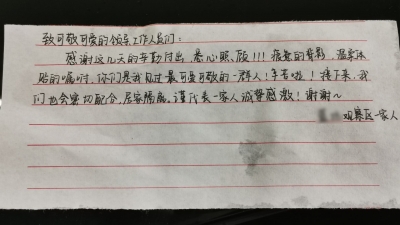 致可敬可爱的领导工作人员们:
感谢这几天的辛勤付出,悉心照顾!!!疲惫的背影,温柔体
贴的嘱咐,你们是我见过最可爱可敬的一群人!辛苦啦!接下来,我
们也会密切配合,居家隔离。谨代表一家人诚挚感激!谢谢~
观察区一家人